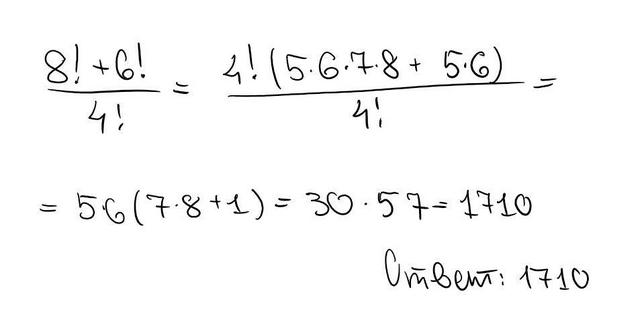 8! + 6! / 4! = 4! (5·6·7·8 + 5·6) / 4! =
= 5·6 (7·8 + 1) = 30 · 57 = 1710
Ответ: 1710